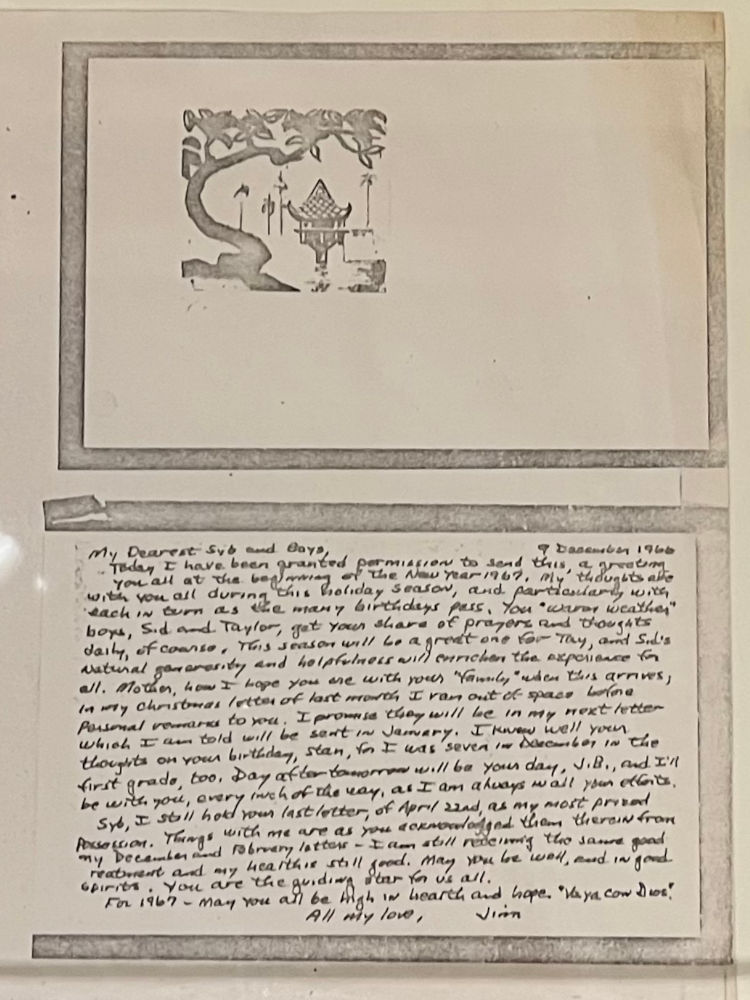 My Dearest Syb and Boys, 9 December 1966
Today I have been granted permission to send this, a greeting
you all at the beginning of the New Year 1967. My thoughts are
with you all during this holiday season, and particularly with
each in turn as the many birthdays pass. You "warm weather"
boys, Sid and Taylor, get your share of prayers and thoughts
daily, of course. This season will be a great one for Tay, and Sid's
natural generosity and helpfulness will enrichen the experience for
all. Mother, how I hope you are with your "family" when this arrives;
in my Christmas letter of last month I ran out of space before
personal remarks to you. I promise they will be in my next letter
which I am told will be sent in January. I know well your
thoughts on your birthday, Stan, for I was seven in December in the
first grade, too. Day after tomorrow will be your day, J.B., and I'll
be with you, every inch of the way, as I am always in all your efforts.
Syb, I still hold your last letter, of April 22nd, as my most prized
possession. Things with me are as you acknowledged them therein from
my December and February letters - I am still receiving the same good
reatment and my health is still good. May you be well, and in good
spirits. You are the guiding star for us all.
For 1967 - may you all be high in hearth and hope. "Vaya con Dios".
All my love, Jim